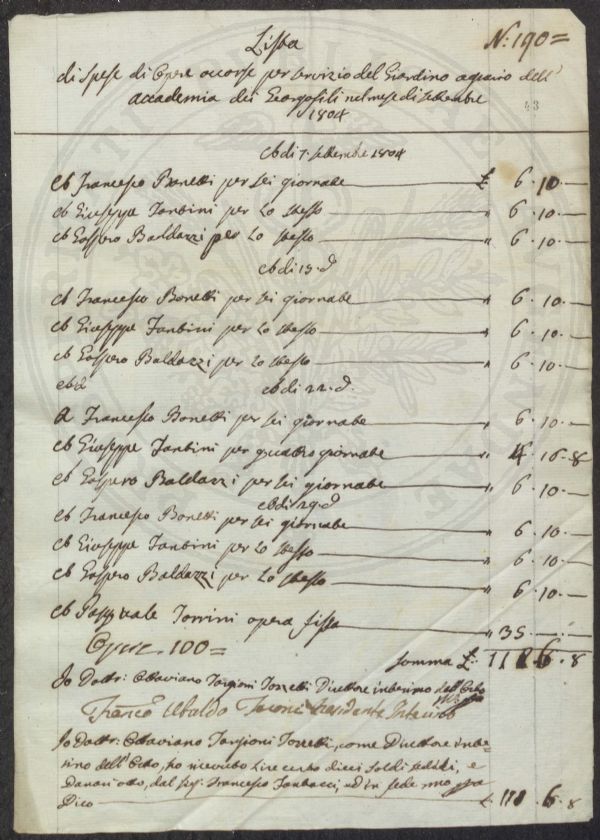 N: 190 =
Lista
di Spese di Opere occorse per servizio del Giardino agrario dell'
accademia dei Georgofili nel mese di settembre
1804
43
A dì 7. settembre 1804
A Francesco Bonetti per sei giornate £ 6.10.—
A Giuseppe Tantini per Lo stesso " 6.10.—
A Gaspero Baldazzi per Lo stesso " 6.10.—
A dì 15. d.
A Francesco Bonetti per sei giornate " 6.10.—
A Giuseppe Tantini per Lo stesso " 6.10.—
A Gaspero Baldazzi per Lo stesso " 6.10.—
A dì 22. d.
A Francesco Bonetti per sei giornate " 6.10.—
A Giuseppe Tantini per quattro giornate " 4.16.8
A Gaspero Baldazzi per sei giornate " 6.10.—
A dì 29. d
A Francesco Bonetti per sei giornate " 6.10.—
A Giuseppe Tantini per Lo stesso " 6.10.—
A Gaspero Baldazzi per Lo stesso " 6.10.—
A Pasquale Torrini opera fissa " 35.—.—
Opere 100 =
Somma £: 6.8
Io Dottr: Ottaviano Targioni Tozzetti Direttore interino dell'Orto
Franc.o Ubaldo Presidente
Io Dottr: Ottaviano Targioni Tozzetti, come Direttore inte-
rino dell'Orto, ho ricevuto Lire cento dieci soldi sedici, e
Danari otto, dal Sig: Francesco ed in fede mano pa
Dico £. 6.8